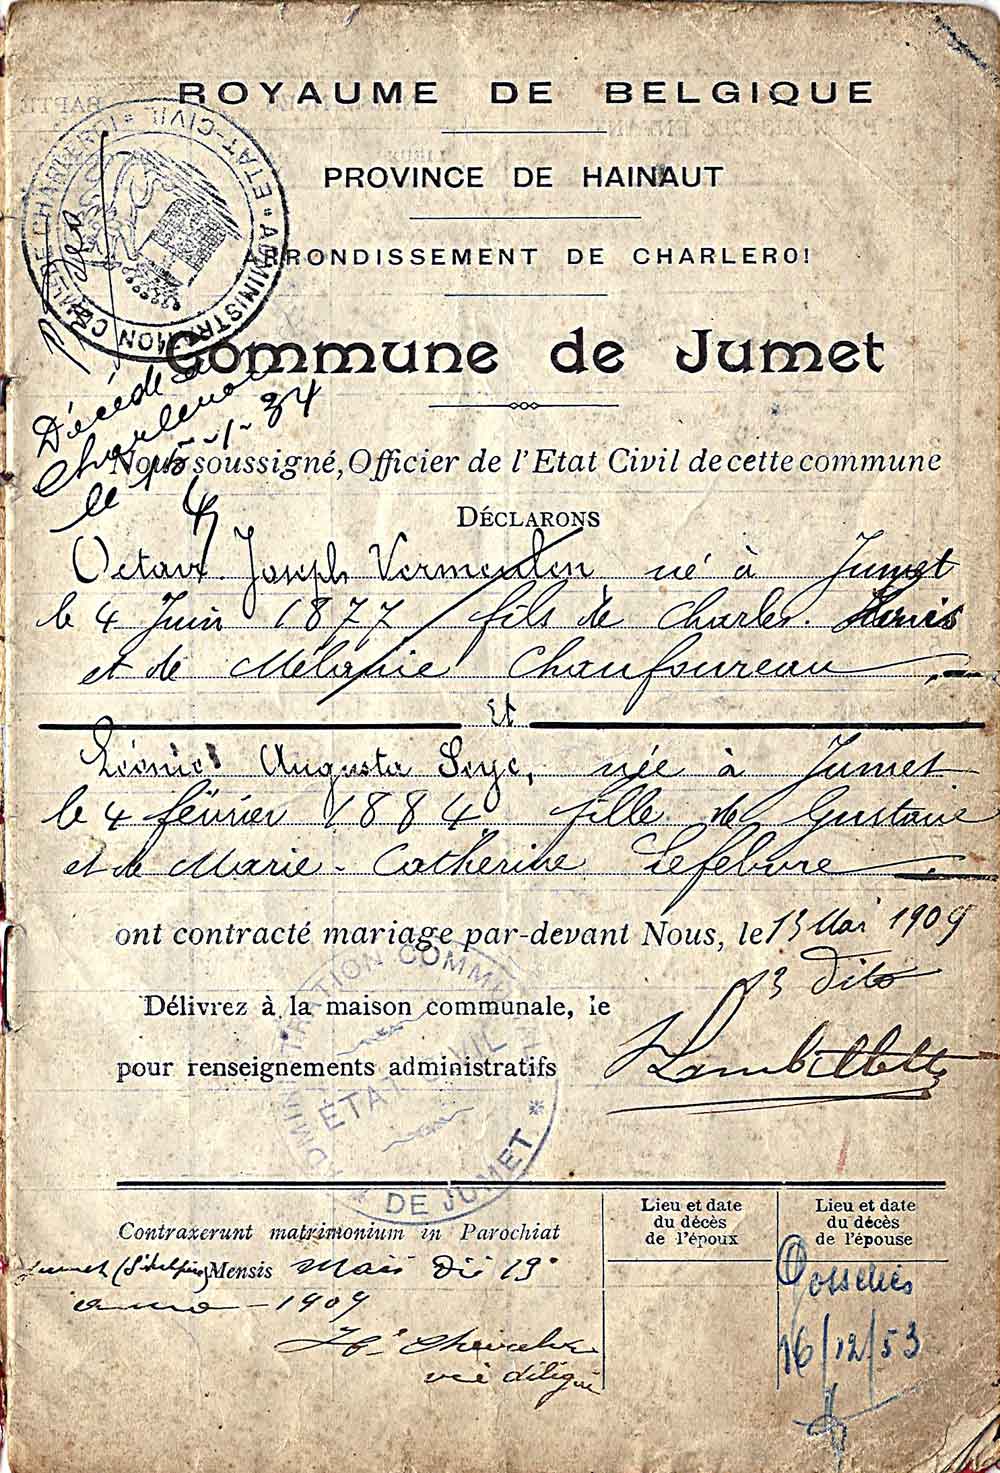 ROYAUME DE BELGIQUE
PROVINCE DE HAINAUT
ARRONDISSEMENT DE CHARLEROI
ADMINISTRATION ETAT-CIVIL
Commune de Jumet
Décédé à
Charleroi
le 15-1-34
Nous soussigné, Officier de l'Etat Civil de cette commune
DÉCLARONS
Octave Joseph Vermeulen né à Jumet
le 4 Juin 1877 fils de Charles Louis
et de Mélanie Chaufoureau
Et
Léonie Augusta Seye, née à Jumet
le 4 février 1884 fille de Gustave
et de Marie-Catherine Lefebvre
ont contracté mariage par-devant Nous, le 13 Mai 1909
Délivrez à la maison communale, le 13 dito
pour renseignements administratifs
ADMINISTRATION COMMUNALE
ETAT CIVIL
DE JUMET
Contraxerunt matrimonium in Parochiat
Jumet Mensis Maii Die 19
anno - 1909
Lieu et date
du décès
de l'époux
Lieu et date
du décès
de l'épouse
Gosselies
16/12/53